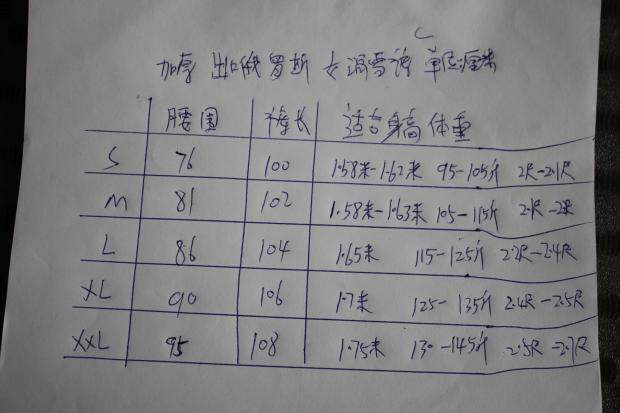 加厚 出口俄罗斯 女滑雪裤 单位厘米
腰围 裤长 适合身高 体重
S 76 100 1.58米-1.62米 95-105斤 2尺-2.1尺
M 81 102 1.58米-1.63米 105-115斤 2.1尺-2尺
L 86 104 1.65米 115-125斤 2.2尺-2.4尺
XL 90 106 1.7米 125-135斤 2.4尺-2.5尺
XXL 95 108 1.75米 130-145斤 2.5尺-2.7尺